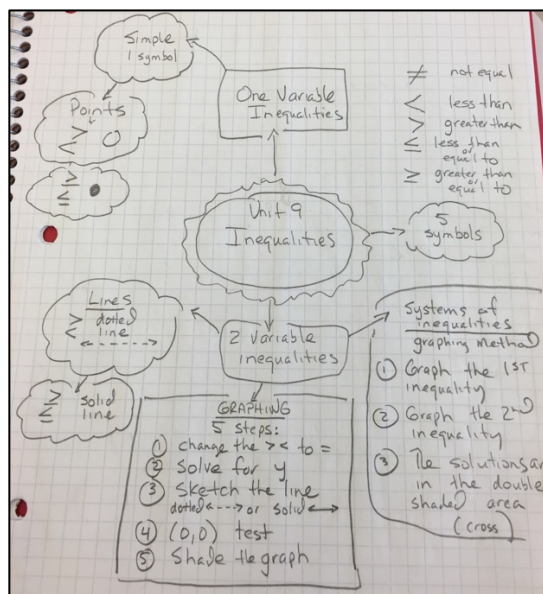 Simple
1 symbol
One Variable
Inequalities
Points
>
<
≥
≤
≠ not equal
< less than
> greater than
≤ less than
or
equal to
≥ greater than
or
equal to
Unit 9
Inequalities
5
symbols
Lines
> dotted
< line
≥ solid
≤ line
2 Variable
inequalities
Systems of
inequalities
graphing method
① Graph the 1ST
inequality
② Graph the 2nd
inequality
③ The solutions ar
in the double
shaded area
(cross)
GRAPHING
5 steps:
① change the > < to =
② Solve for y
③ Sketch the line
dotted <---> or solid <->
④ (0,0) test
⑤ Shade the graph